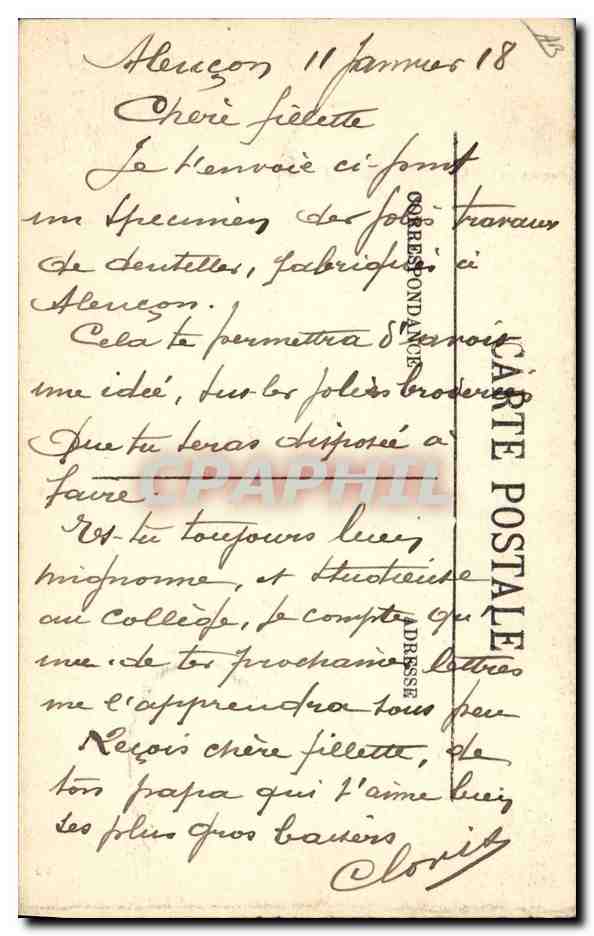 AB
Alençon 11 Janvier 18
Chère fillette
Je t'envoie ci-joint
un specimen des jolis travaux
de dentelles, fabriqués à
Alençon.
Cela te permettra d'avoir
une idée, sur les jolies broderies
Que tu seras disposée à
faire.
Es-tu toujours bien
mignonne, et studieuse
au collège, je compte qu
une de tes prochaines lettres
me l'apprendra sous peu
Reçois chère fillette, de
ton papa qui t'aime bien
ses plus gros baisers
Cloris
CARTE POSTALE
CORRESPONDANCE
ADRESSE
CPAPHIL